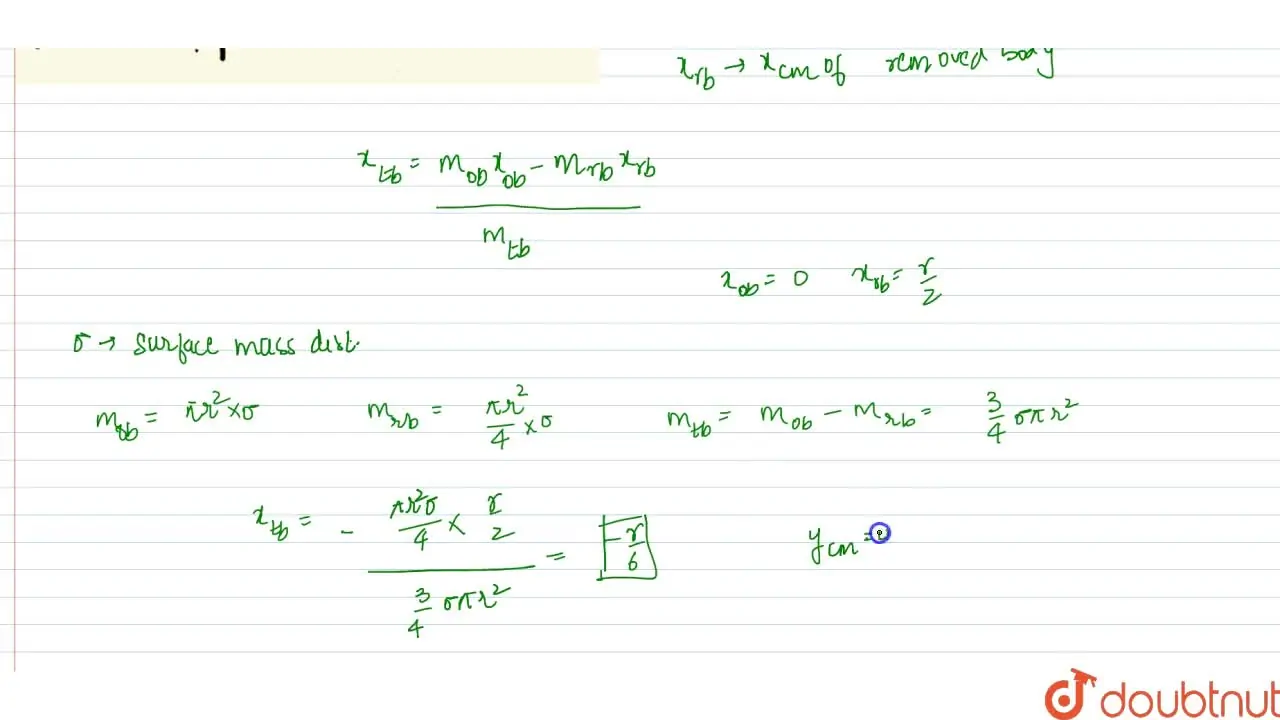 x_rb → x_cm of removed body
x_tb = (m_ob x_ob − m_rb x_rb) / m_tb
x_ob = 0 x_rb = r/2
σ → surface mass dist.
m_ob = πr² × σ m_rb = πr²/4 × σ m_tb = m_ob − m_rb = 3/4 σπr²
x_tb = − (πr²σ/4 × r/2) / (3/4 σπr²) = −r/6 y_cm =
doubtnut